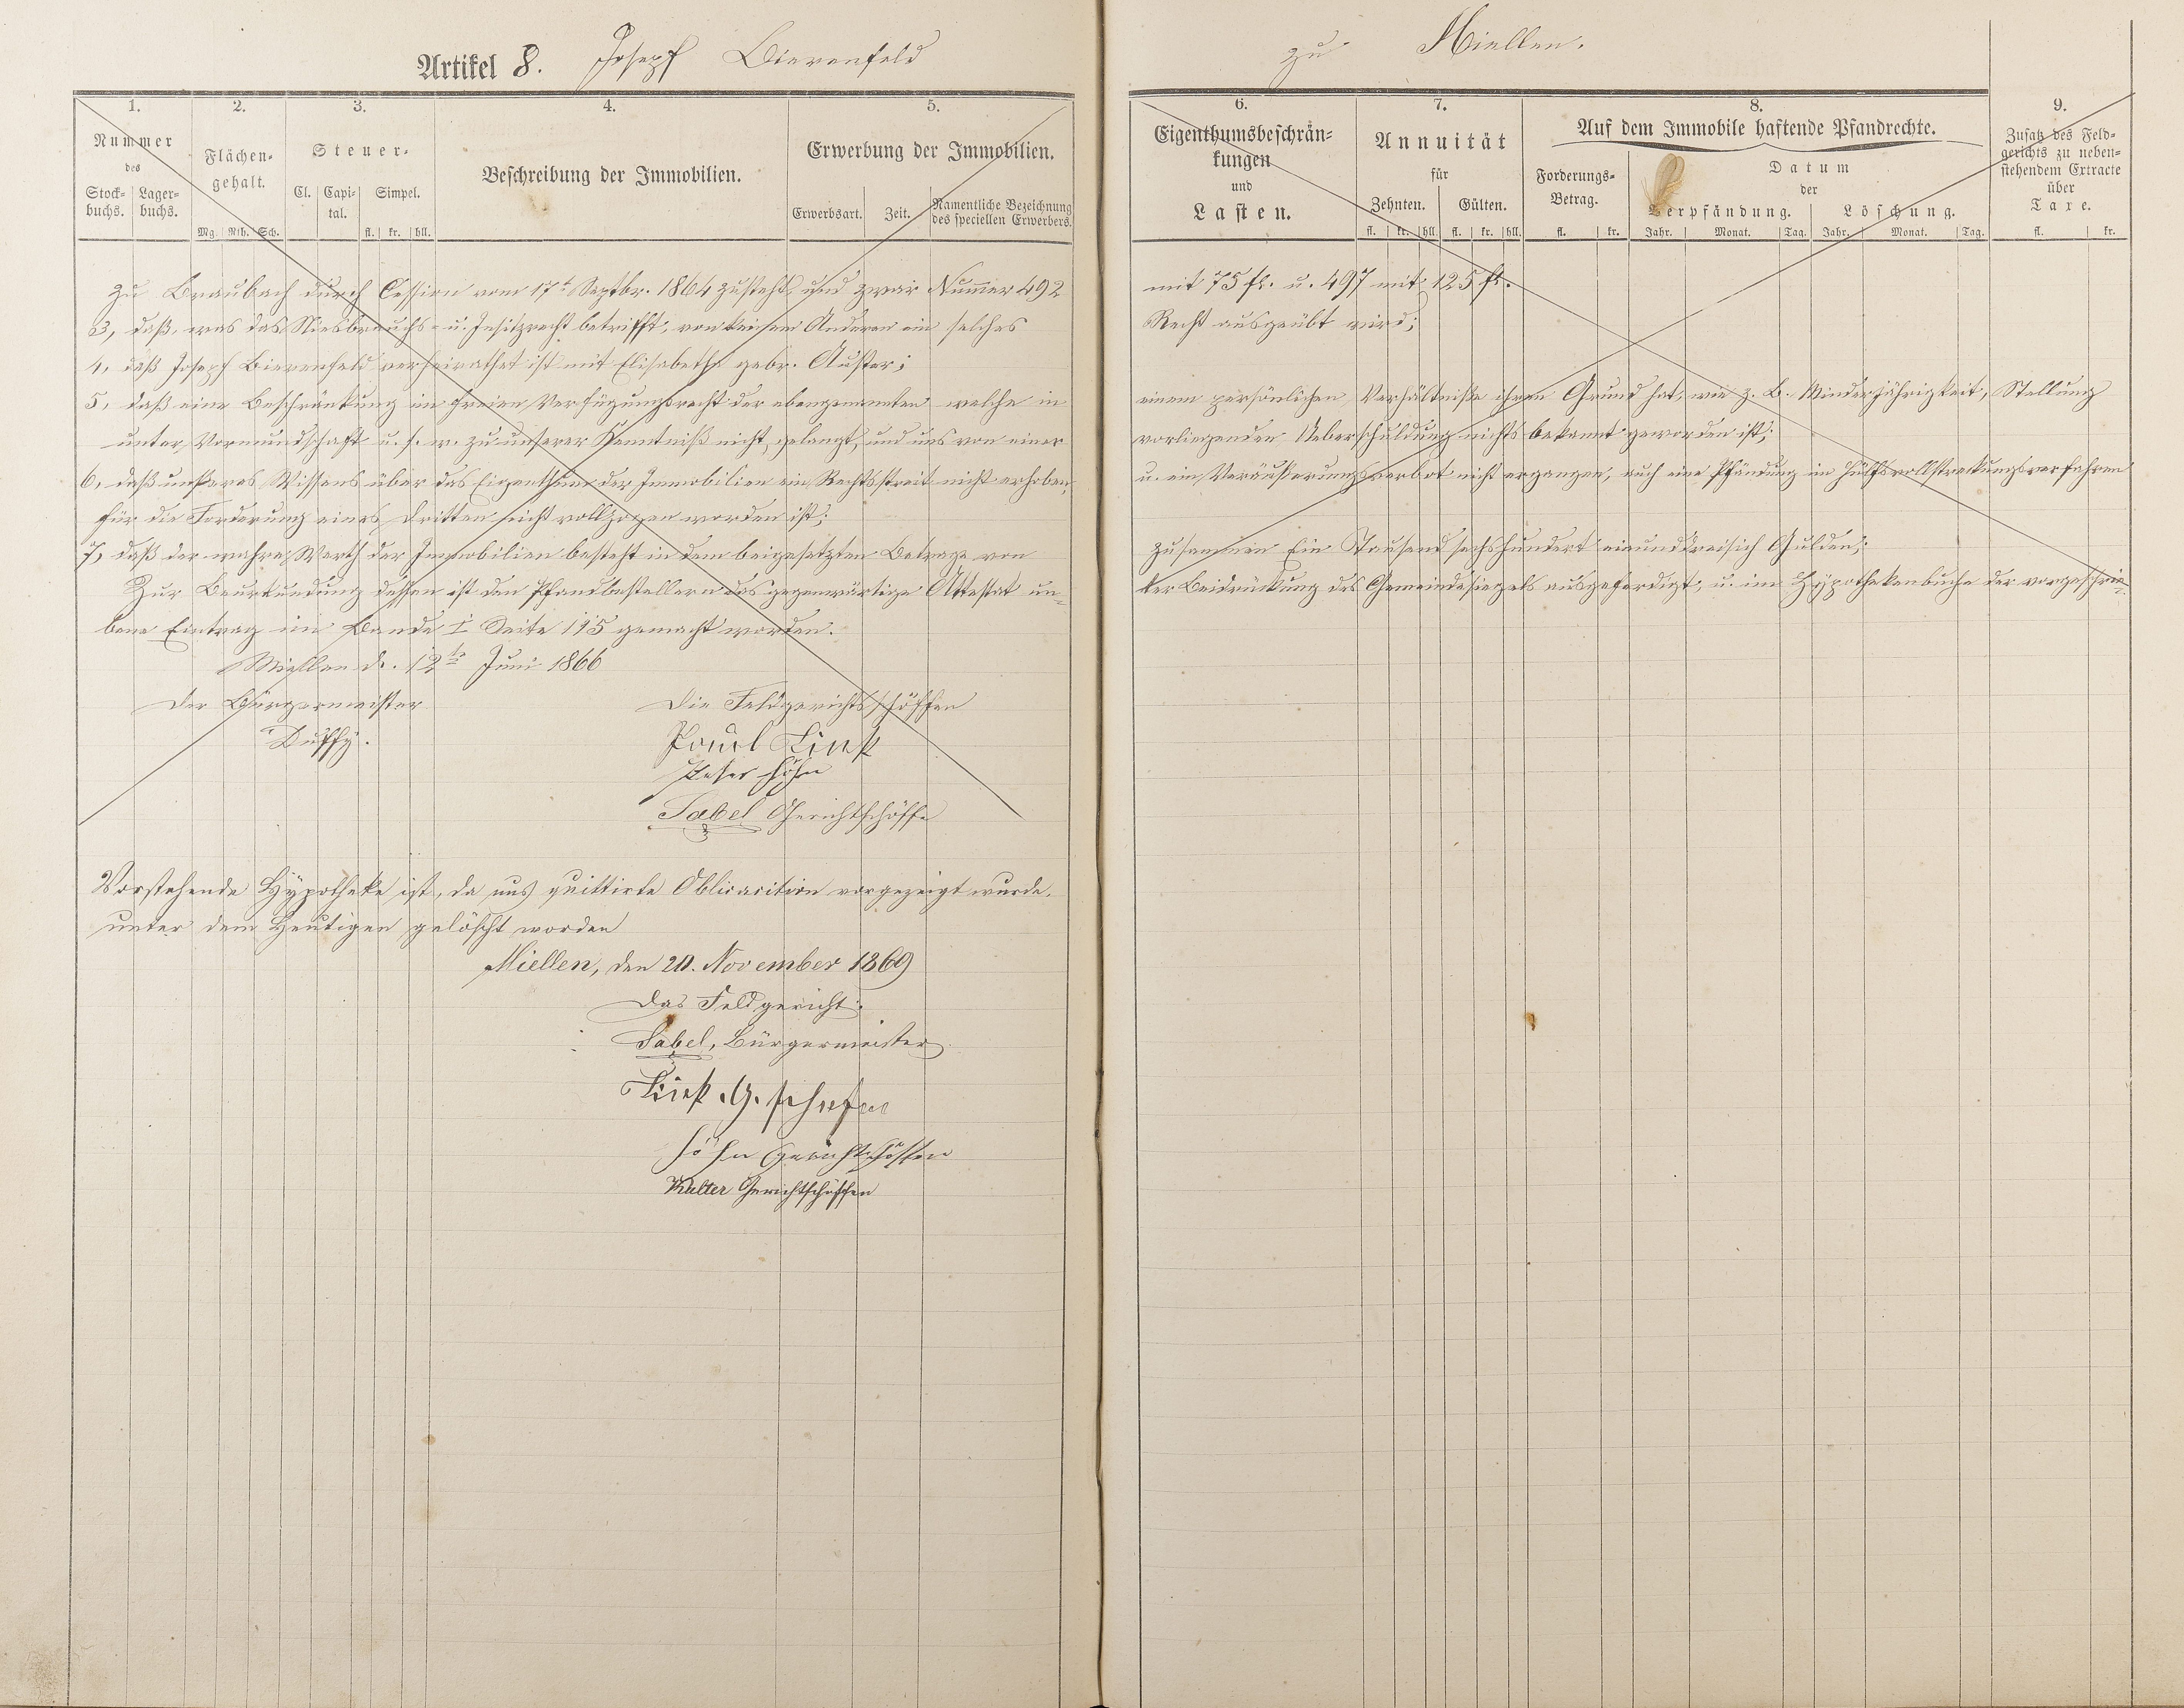 Artikel 8. Joseph Bierenfeld
zu Miellen.
1.
2.
3.
4.
5.
Nummer
des
Stock-
buchs.
Lager-
buchs.
Flächen-
gehalt.
Mg. Rth. Sch.
Steuer-
Cl.
Capi-
tal.
Simpel.
fl. kr. hll.
Beschreibung der Immobilien.
Erwerbung der Immobilien.
Erwerbsart.
Zeit.
Namentliche Bezeichnung
des speciellen Erwerbers.
6.
7.
8.
9.
Eigenthumsbeschrän-
kungen
und
Lasten.
Annuität
für
Zehnten.
Gülten.
fl. kr. hll. fl. kr. hll.
Auf dem Immobile haftende Pfandrechte.
Forderungs-
Betrag.
fl. kr.
Datum
der
Verpfändung.
Löschung.
Jahr. Monat. Tag. Jahr. Monat. Tag.
Zusatz des Feld-
gerichts zu neben-
stehendem Extracte
über
Taxe.
fl. kr.
zu Braubach durch Cession vom 17t Septbr. 1864 zusteht, und zwar Nummer 492 mit 75 fl. u. 497 mit 125 fl.
3, daß, was das Niesbrauchs- u. Insitzrecht betrifft, von keinem Anderen ein solches Recht ausgeübt wird;
4, daß Joseph Bierenfeld verheirathet ist mit Elisabetha gebr. Auster;
5, daß eine Beschränkung im freien Verfügungsrecht der obengenannten welche in einem persönlichen Verhältniße ihren Grund hat, wie z. B. Minderjährigkeit, Stellung
unter Vormundschaft u. s. w. zu unserer Kenntniß nicht gelangt, und uns von einer vorliegenden Ueberschuldung nichts bekannt geworden ist;
6, daß unseres Wissens über das Eigenthum der Immobilien ein Rechtsstreit nicht erhoben, u. ein Veräußerungsverbot nicht ergangen, auch eine Pfändung im Hülfsvollstreckungsverfahren
für die Forderung eines Dritten nicht vollzogen worden ist;
7, daß der wahre Werth der Immobilien besteht in dem beigesetzten Betrage von zusammen Ein Tausend sechshundert einunddreisich Gulden;
Zur Beurkundung dessen ist den Pfandbestellern das gegenwärtige Attestat un- ter Beidrückung des Gemeindesiegels ausgefertigt, u. im Hypothekenbuche der vorgeschrie-
bene Eintrag im Bande I Seite 115 gemacht worden.
Miellen d. 12t Juni 1866
Der Bürgermeister
Die Feldgerichtsschöffen
Duffy.
Paul Link
Peter Höhn
Sabel Gerichtschöffe
Vorstehende Hypotheke ist, da uns quittirte Obligacition vorgezeigt wurde,
unter dem Heutigen gelöscht worden
Miellen, den 20. November 1869
Das Feldgericht:
Sabel, Bürgermeister
Link. G. schefen
Höhn Gerichtschöffen
Kalter Gerichtschöffen